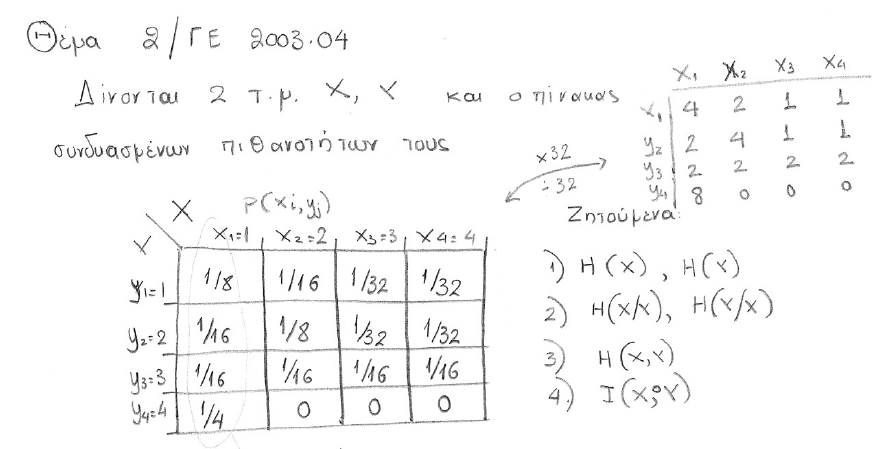 Θέμα 2/ΓΕ 2003.04
Δίνονται 2 τ.μ. X, Y και ο πίνακας
συνδυασμένων πιθανοτήτων τους
X1 X2 X3 X4
Y1 4 2 1 1
y2 2 4 1 1
y3 2 2 2 2
y4 8 0 0 0
×32
÷32
X P(xi,yj)
Y X1=1 X2=2 X3=3 X4=4
y1=1 1/8 1/16 1/32 1/32
y2=2 1/16 1/8 1/32 1/32
y3=3 1/16 1/16 1/16 1/16
y4=4 1/4 0 0 0
Ζητούμενα:
1) H(X), H(Y)
2) H(X/Y), H(Y/X)
3) H(X,Y)
4) I(X;Y)